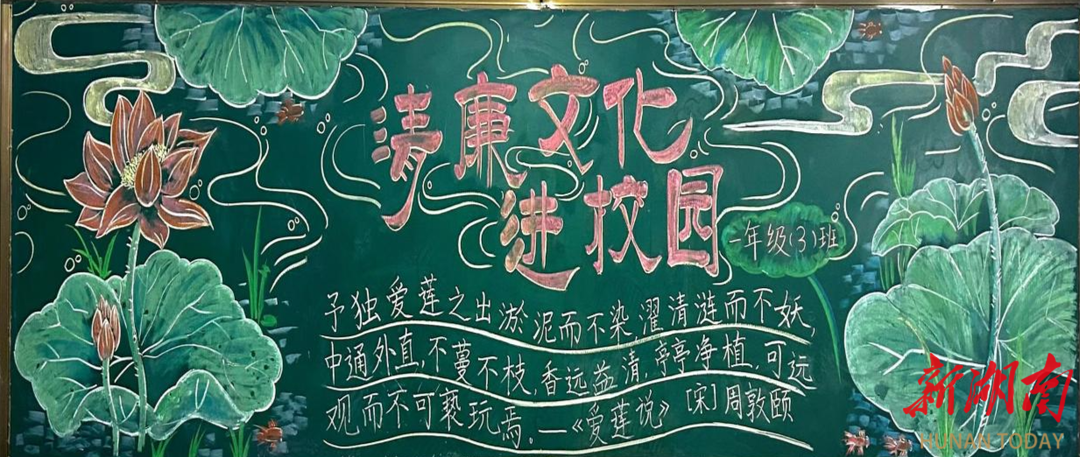 清廉文化
进校园
一年级(3)班
予独爱莲之出淤泥而不染,濯清涟而不妖,
中通外直,不蔓不枝,香远益清,亭亭净植,可远
观而不可亵玩焉。—《爱莲说》[宋]周敦颐
新湖南
HUNAN TODAY